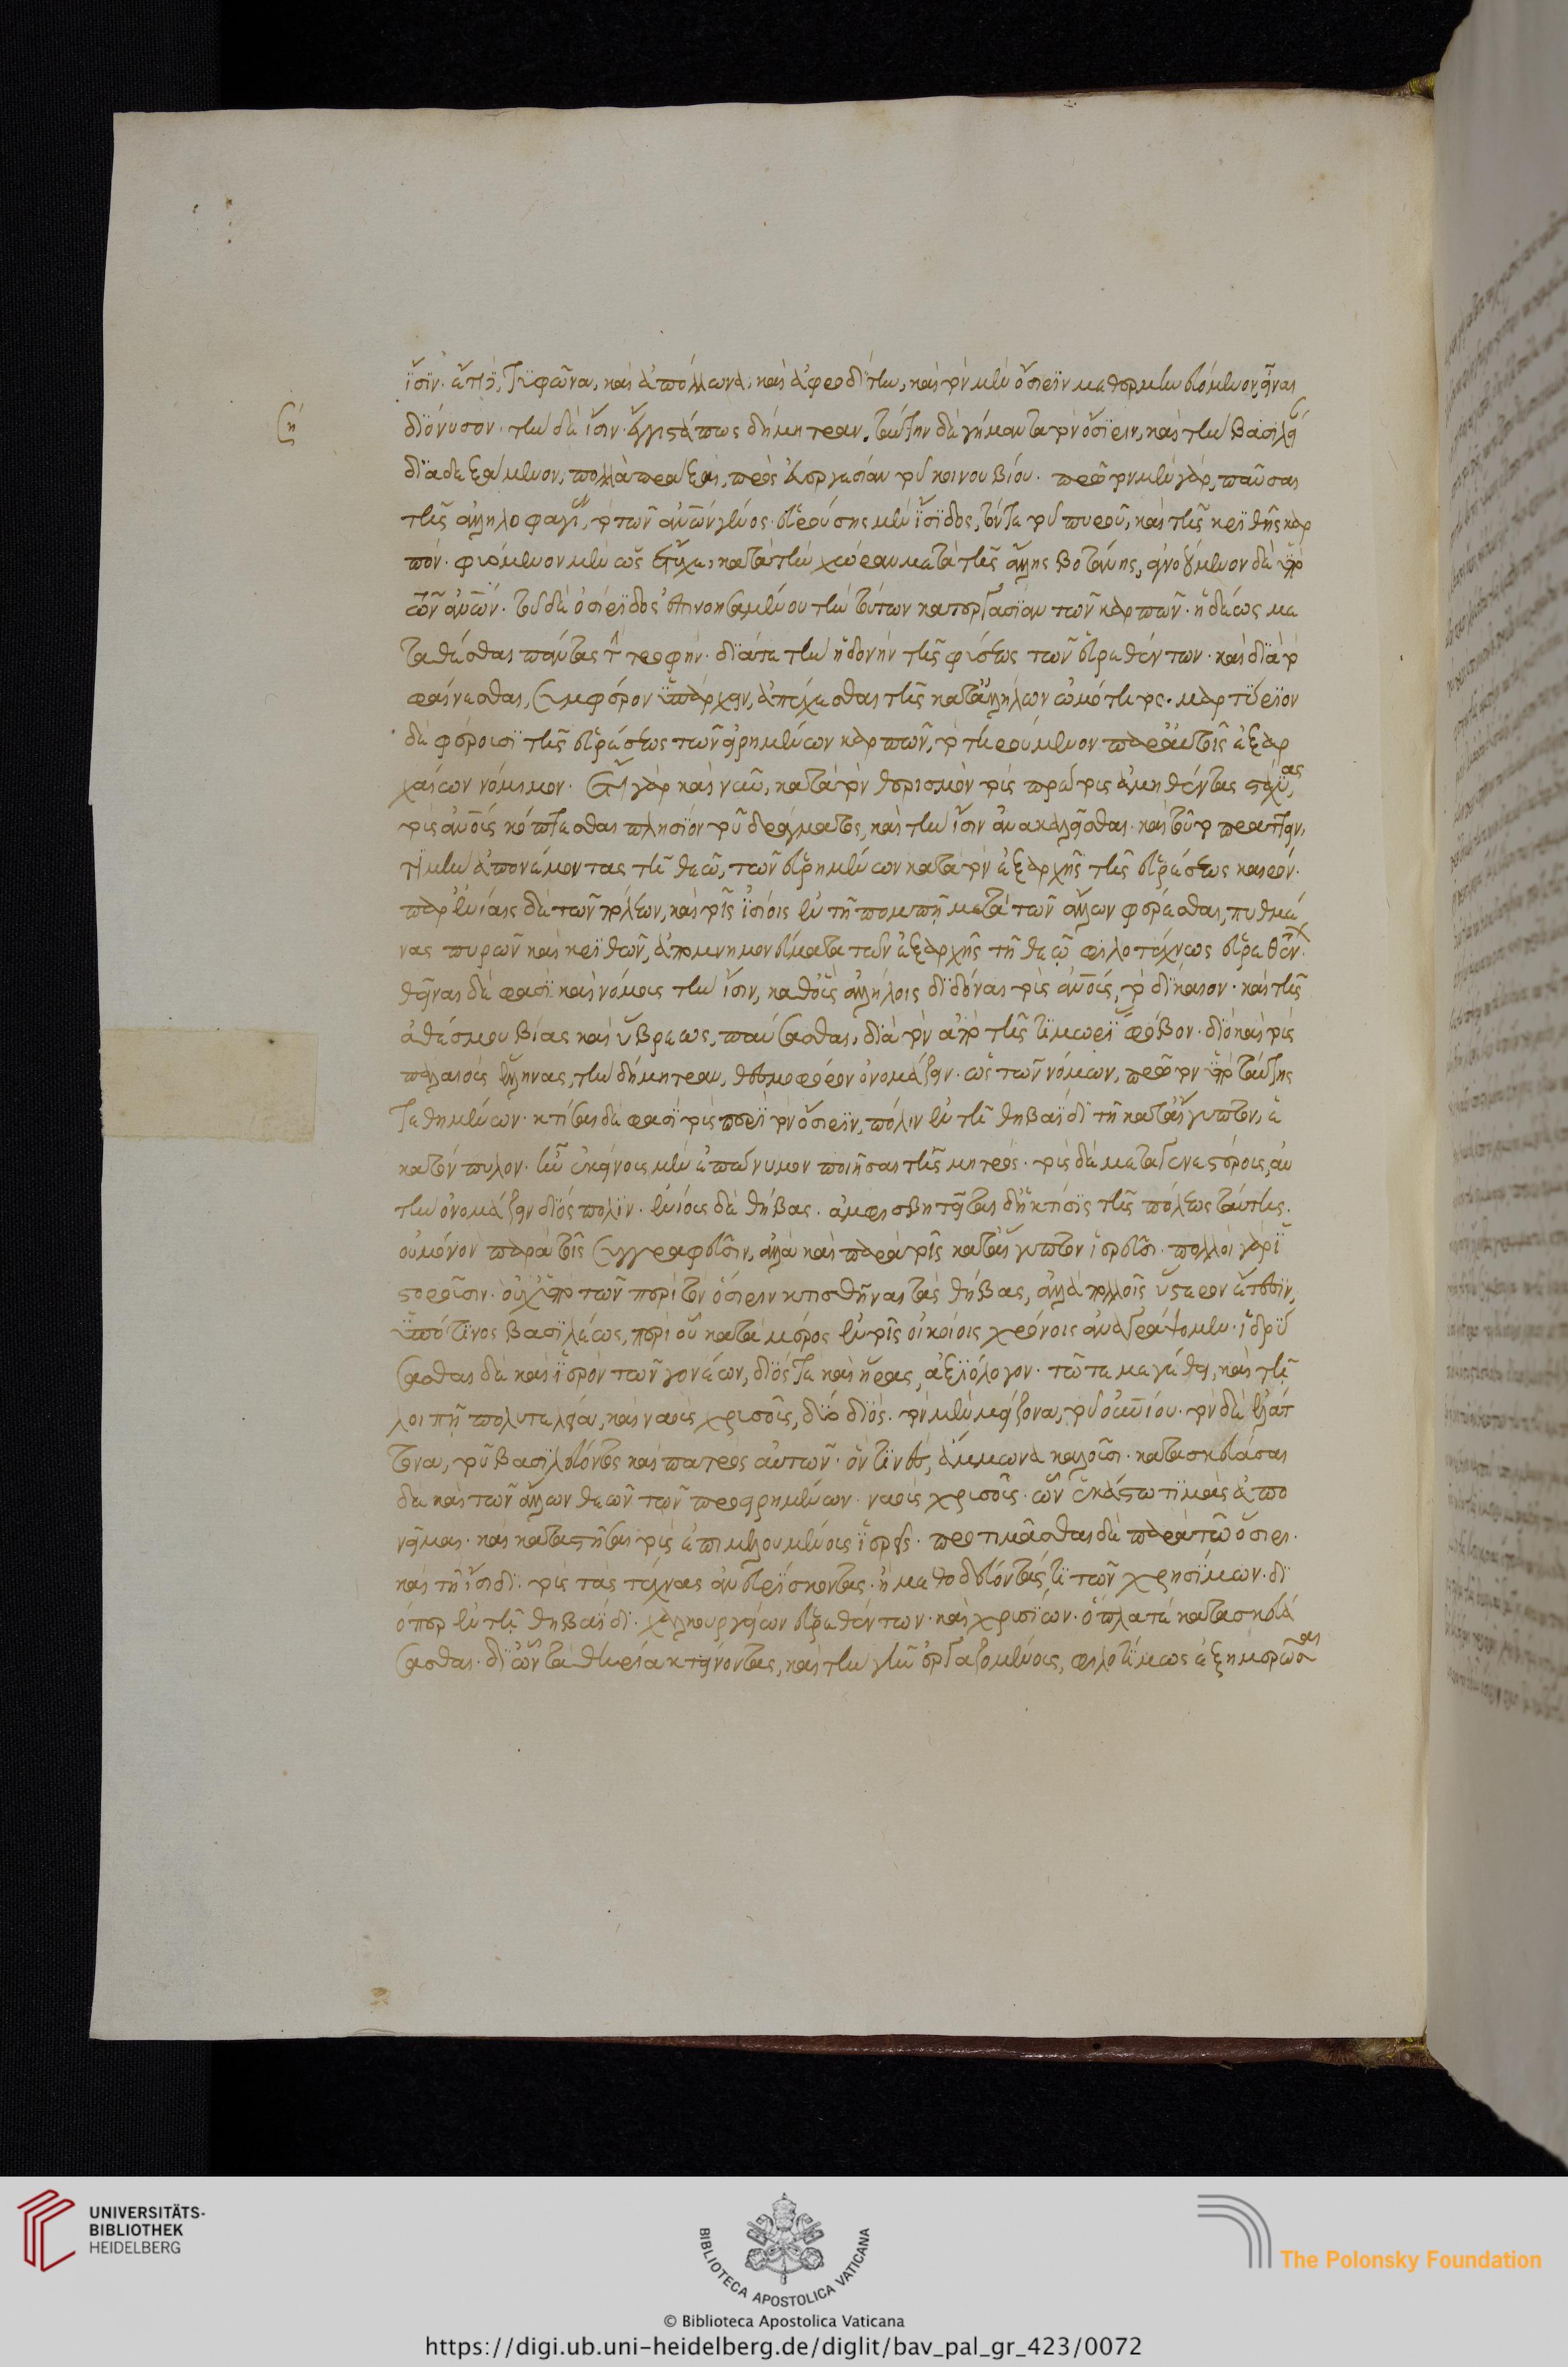 ἶσιν· ἔτι δὲ, τυφῶνα, καὶ ἀπόλλωνα, καὶ ἀφροδίτην, καὶ τὸν μὲν ὄσιριν μεθερμηνευόμενον, εἶναι
διόνυσον· τὴν δὲ ἶσιν· ἔγγιστά πως δήμητραν. ταύτην δὲ γήμαντα τὸν ὄσιριν, καὶ τὴν βασιλεί
διαδεξάμενον, πολλὰ πρᾶξαι, πρὸς εὐεργεσίαν τοῦ κοινοῦ βίου· πρῶτον μὲν γὰρ, παῦσαι
ση
τῆς ἀλληλοφαγί, τὸ τῶν ἀνων γένος· εὑρούσης μὲν ἴσιδος, τόν τε τοῦ πυροῦ, καὶ τῆς κριθῆς καρ
πόν· φυόμενον μὲν ὡς ἔτυχε, κατὰ τὴν χώραν μετὰ τῆς ἄλλης βοτάνης, ἀγνοούμενον δὲ ὑπὸ
τῶν ἀνων· τοῦ δὲ ὀσίριδος ἐπινοησαμένου τὴν τούτων κατεργασίαν τῶν καρπῶν· ἡδέως με
ταθέσθαι πάντας τ τροφήν· διά τε τὴν ἡδονὴν τῆς φύσεως τῶν εὑρεθέντων· καὶ διὰ τὸ
φαίνεσθαι, συμφέρον ὑπάρχειν, ἀπέχεσθαι τῆς κατ' ἀλλήλων ὠμότητος· μαρτύριον
δὲ φέρουσι τῆς εὑρέσεως τῶν εἰρημένων καρπῶν, τὸ τηρούμενον παρ' αὐτοῖς ἐξ ἀρ
χαίων νόμιμον· ἔτι γὰρ καὶ νῦν, κατὰ τὸν θερισμὸν τοὺς πρώτους ἀμηθέντας στάχυας,
τοὺς ἀνους κόπτεσθαι πλησίον τοῦ δράγματος, καὶ τὴν ἶσιν ἀνακαλεῖσθαι· καὶ τοῦτο πράττειν,
τιμὴν ἀπονέμοντας τῇ θεῷ, τῶν εὑρημένων κατὰ τὸν ἐξ ἀρχῆς τῆς εὑρέσεως καιρόν·
παρ' ἐνίαις δὲ τῶν πόλεων, καὶ τοῖς ἰσίοις ἐν τῇ πομπῇ μετὰ τῶν ἄλλων φέρεσθαι, πυθμέ
νας πυρῶν καὶ κριθῶν, ἀπομνημονεύματα τῶν ἐξ ἀρχῆς τῇ θεῷ φιλοτέχνως εὑρεθέν·
θεῖναι δέ φασι καὶ νόμους τὴν ἶσιν, καθ' οὓς ἀλλήλοις διδόναι τοὺς ἀνους, τὸ δίκαιον· καὶ τῆς
ἀθέσμου βίας καὶ ὕβρεως, παύσασθαι, διὰ τὸν ἀπὸ τῆς τιμωρί φόβον· διὸ καὶ τοὺς
παλαιοὺς ἕλληνας, τὴν δήμητραν, θεσμοφόρον ὀνομάζειν· ὡς τῶν νόμων, πρῶτον ὑπὸ ταύτης
τεθημένων· κτίσαι δέ φασι τοὺς περὶ τὸν ὄσιριν, πόλιν ἐν τῇ θηβαΐδι τῇ κατ' αἴγυπτον, ἑ
κατόνπυλον· ἣν ἐκείνους μὲν ἐπώνυμον ποιῆσαι τῆς μητρός· τοὺς δὲ μεταγενεστέρους, αὐ
τὴν ὀνομάζειν διὸς πόλιν· ἐνίους δὲ θήβας· ἀμφισβητεῖται δ' ἡ κτίσις τῆς πόλεως ταύτης·
οὐ μόνον παρὰ τοῖς συγγραφεῦσιν, ἀλλὰ καὶ παρὰ τοῖς κατ' αἴγυπτον ἱερεῦσι· πολλοὶ γὰρ ἱ
στοροῦσιν· οὐχ ὑπὸ τῶν περὶ τὸν ὄσιριν κτισθῆναι τὰς θήβας, ἀλλὰ πολλοῖς ὕστερον ἔτεσιν,
ὑπό τινος βασιλέως, περὶ οὗ κατὰ μέρος ἐν τοῖς οἰκείοις χρόνοις ἀναγράψομεν· ἱδρύ
σασθαι δὲ καὶ ἱερὸν τῶν γονέων, διός τε καὶ ἥρας, ἀξιόλογον· τῷ τε μεγέθει, καὶ τῇ
λοιπῇ πολυτελείᾳ, καὶ ναοὺς χρυσοῦς, δύο διός· τὸν μὲν μείζονα, τοῦ οὐνίου· τὸν δὲ ἐλάτ
τονα, τοῦ βασιλεύοντος καὶ πατρὸς αὐτῶν· ὅν τινες, ἄμμωνα καλοῦσι· κατασκευάσαι
δὲ καὶ τῶν ἄλλων θεῶν τῶν προειρημένων· ναοὺς χρυσοῦς· ὧν ἑκάστῳ τιμὰς ἀπο
νεῖμαι· καὶ καταστῆσαι τοὺς ἐπιμελουμένους ἱερεῖς· προτιμᾶσθαι δὲ παρὰ τῷ ὄσιρι·
καὶ τῇ ἴσιδι· τοὺς τὰς τέχνας ἀνευρίσκοντας· ἢ μεθοδεύοντάς τι τῶν χρησίμων· δι
όπερ ἐν τῇ θηβαΐδι· χαλκουργείων εὑρεθέντων· καὶ χρυσίων· ὅπλα τὲ κατασκευά
σασθαι· δι' ὧν τὰ θηρία κτείνοντας, καὶ τὴν γῆν ἐργαζομένους, φιλοτίμως ἐξημερῶσαι
UNIVERSITÄTS-
BIBLIOTHEK
HEIDELBERG
BIBLIOTECA APOSTOLICA VATICANA
The Polonsky Foundation
© Biblioteca Apostolica Vaticana
https://digi.ub.uni-heidelberg.de/diglit/bav_pal_gr_423/0072